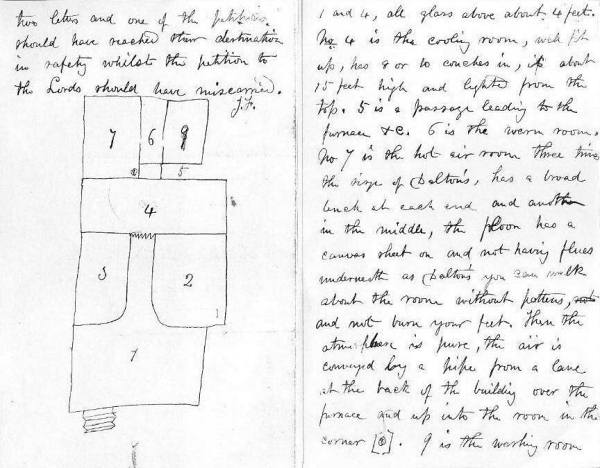 two letters and one of the petitions
should have reached their destination
in safety whilst the petition to
the Lords should have miscarried.
J.F.
7
6
9
5
4
3
2
1
1
1 and 4, all glass above about 4 feet.
No 4 is the cooling room, well fit
up, has 8 or 10 couches in, is about
15 feet high and lighted from the
top. 5 is a passage leading to the
furnace &c. 6 is the warm room.
No 7 is the hot air room three times
the size of Dalton's, has a broad
bench at each end and another
in the middle, the floor has a
canvas sheet on and not having flues
underneath as Dalton's you can walk
about the room without pattens,
and not burn your feet. Then the
atmosphere is pure, the air is
conveyed by a pipe from a lane
at the back of the building over the
furnace and up into the room in the
corner . 9 is the washing room